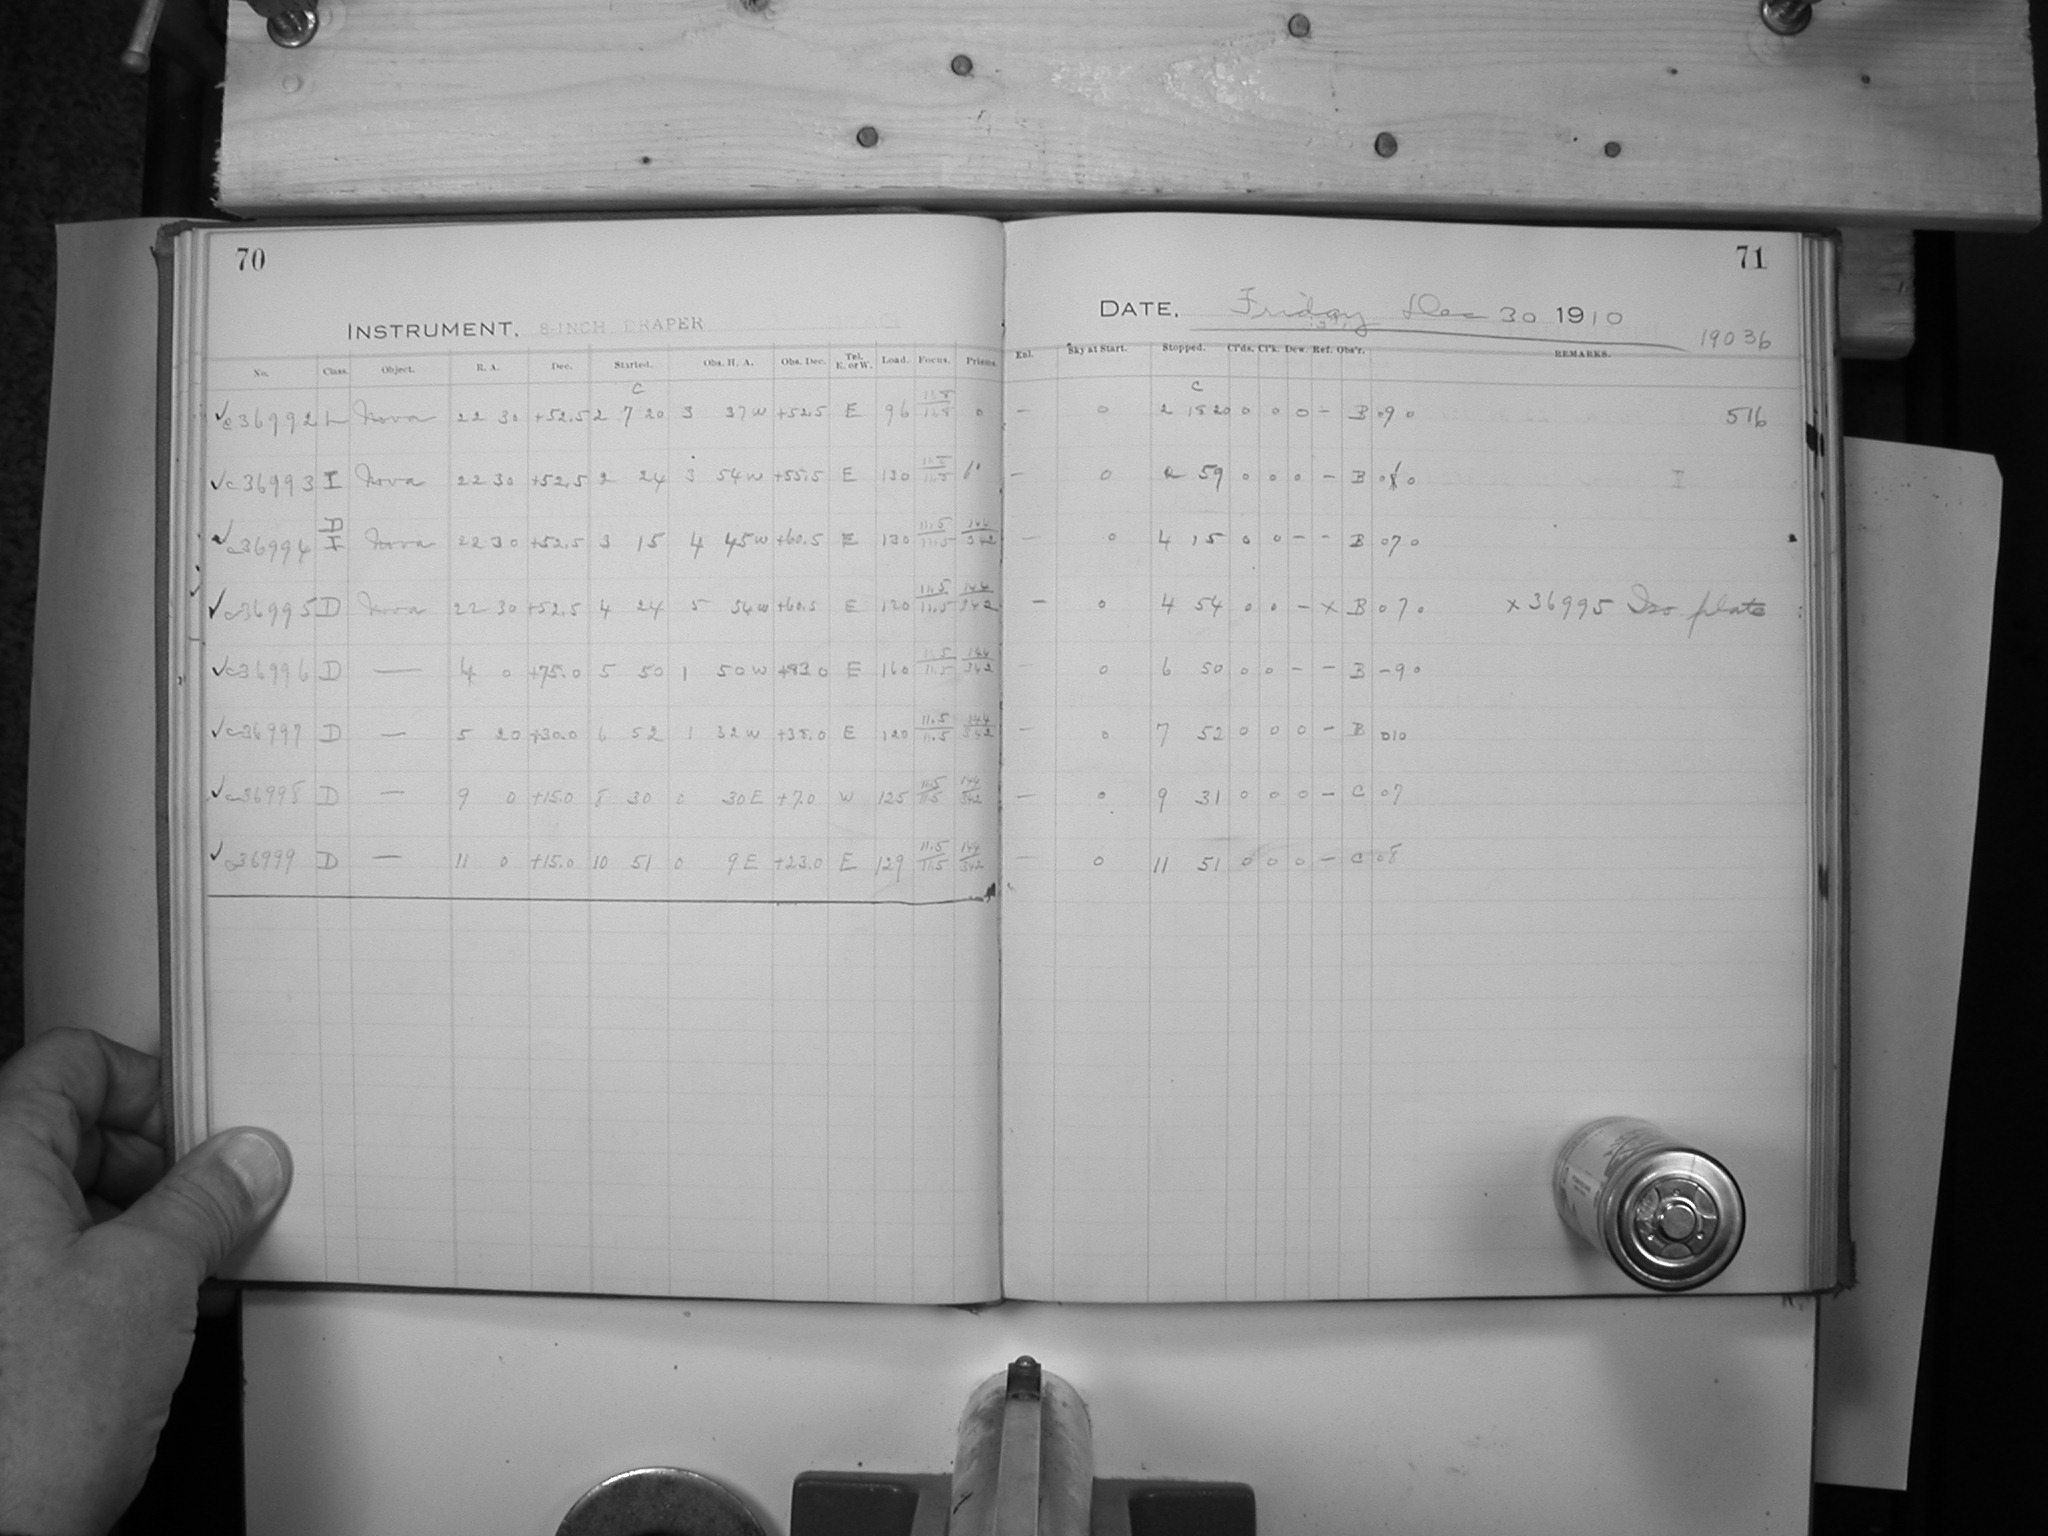 70
INSTRUMENT. 8-INCH DRAPER
No. Class. Object. R. A. Dec. Started. Obs. H. A. Obs. Dec. Tel. E. or W. Load. Focus. Prisms.
C
c36992 L Nova 22 30 +52.5 2 7 20 3 37 W +52.5 E 96 0
c36993 I Nova 22 30 +52.5 2 24 3 54 W +55.5 E 130 11.5 6°
c36994 D I Nova 22 30 +52.5 3 15 4 45 W +60.5 E 130 11.5 11.5 144 342
c36995 D Nova 22 30 +52.5 4 24 5 54 W +60.5 E 120 11.5 11.5 144 342
c36996 D — 4 0 +75.0 5 50 1 50 W +83.0 E 160 11.5 11.5 144 342
c36997 D — 5 20 +30.0 6 52 1 32 W +38.0 E 120 11.5 11.5 144 342
c36998 D — 9 0 +15.0 8 30 0 30 E +7.0 W 125 11.5 11.5 144 342
c36999 D — 11 0 +15.0 10 51 0 9 E +23.0 E 129 11.5 11.5 144 342
71
DATE. Friday Dec 30 1910
19036
Enl. Sky at Start. Stopped. Cl'ds. Cl'k. Dew. Ref. Obs'r. REMARKS.
C
– 0 2 18 20 0 0 0 – B 090 516
– 0 2 59 0 0 0 – B
– 0 4 15 0 0 – – B 070
– 0 4 54 0 0 – x B 070 x 36995 Iso plate
– 0 6 50 0 0 – – B –90
– 0 7 52 0 0 0 – B 010
– 0 9 31 0 0 0 – C 07
– 0 11 51 0 0 0 – C 08